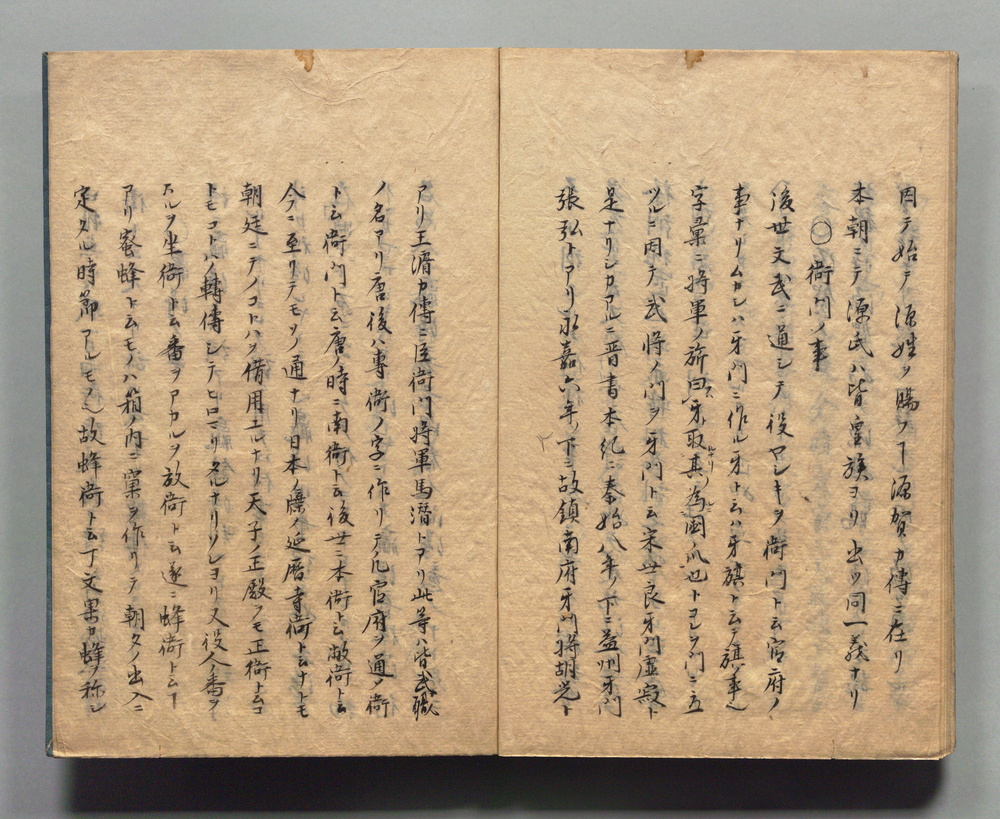 因テ始テ源姓ヲ賜フ丁源賀カ傳ニ在リ
本朝ニテ源氏ハ皆皇族ヨリ出ツ同一義ナリ
〇衙門ノ事
後世文武ニ通シテ役ヤシキヲ衙門ト云官府ノ
事ナリムカシハ牙門ニ作ル牙ト云ハ牙旗ト云テ旗ノ事也
字彙ニ将軍ノ旂曰牙取其為國爪也トコレヲ門ニ立
ツルニ因テ武将ノ門ヲ牙門ト云宋世良牙門虚寂ト
是ナリシカルニ晋書本紀ニ泰始八年ノ下ニ益州牙門
張弘トアリ永嘉六年ノ下ニ故鎮南府牙門将胡亢ト
アリ王濬カ傳ニ
衙門将軍馬潜トアリ此等ハ皆武職
ノ名アリ唐後ハ専衙ノ字ニ作リテ凡官府ヲ通ノ衙
ト云衙門ト云唐ノ時ニ南衙ト云後世ニ本衙ト云敝衙ト云
今ニ至リテモソノ通ナリ日本ノ
延暦寺衙ト云ナトモ
朝廷ニテノコトハヲ借用エルナリ天子ノ正殿ヲモ正衙ト云コ
トモコトハノ轉傳シテヒロマリタルナリソレヨリ又役人ノ番ヲ
スルヲ坐衙ト云番ヲアカルヲ放衙ト云遂ニ蜂衙ト云丁
アリ蜜蜂ト云モノハ箱ノ内ニ窠ヲ作リテ朝夕ノ出入ニ
定タル時節アルモノ也故蜂衙ト云丁文
カ蜂ヲ称シ